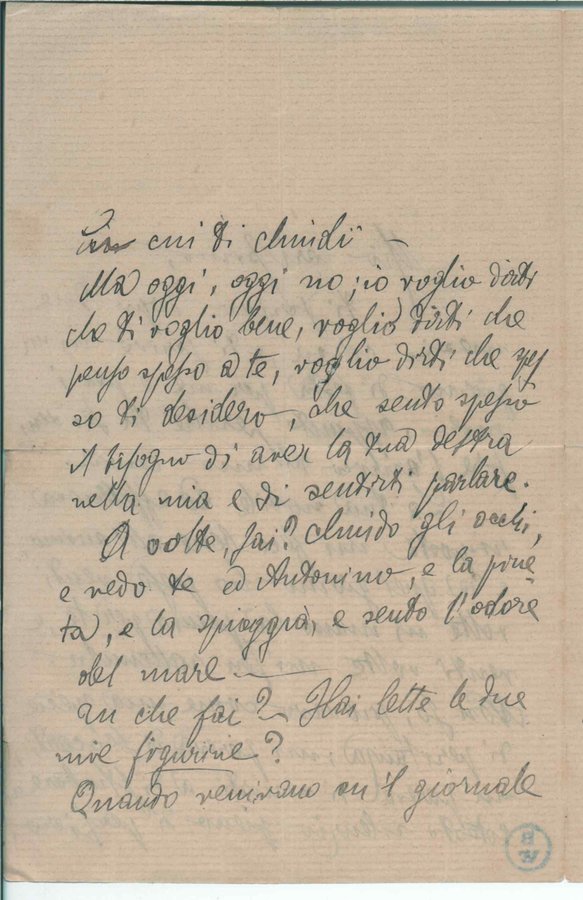 in cui ti chiudi –
Ma oggi, oggi no; io voglio dirti
che ti voglio bene, voglio dirti che
penso spesso a te, voglio dirti che spes
so ti desidero, che sento spesso
il bisogno di aver la tua destra
nella mia e di sentirti parlare.
A volte, sai? chiudo gli occhi,
e vedo te ed Antonino, e la pine-
ta, e la spiaggia, e sento l'odore
del mare. —
Tu che fai? – Hai lette le due
mie figurine?
Quando venivano su 'l giornale